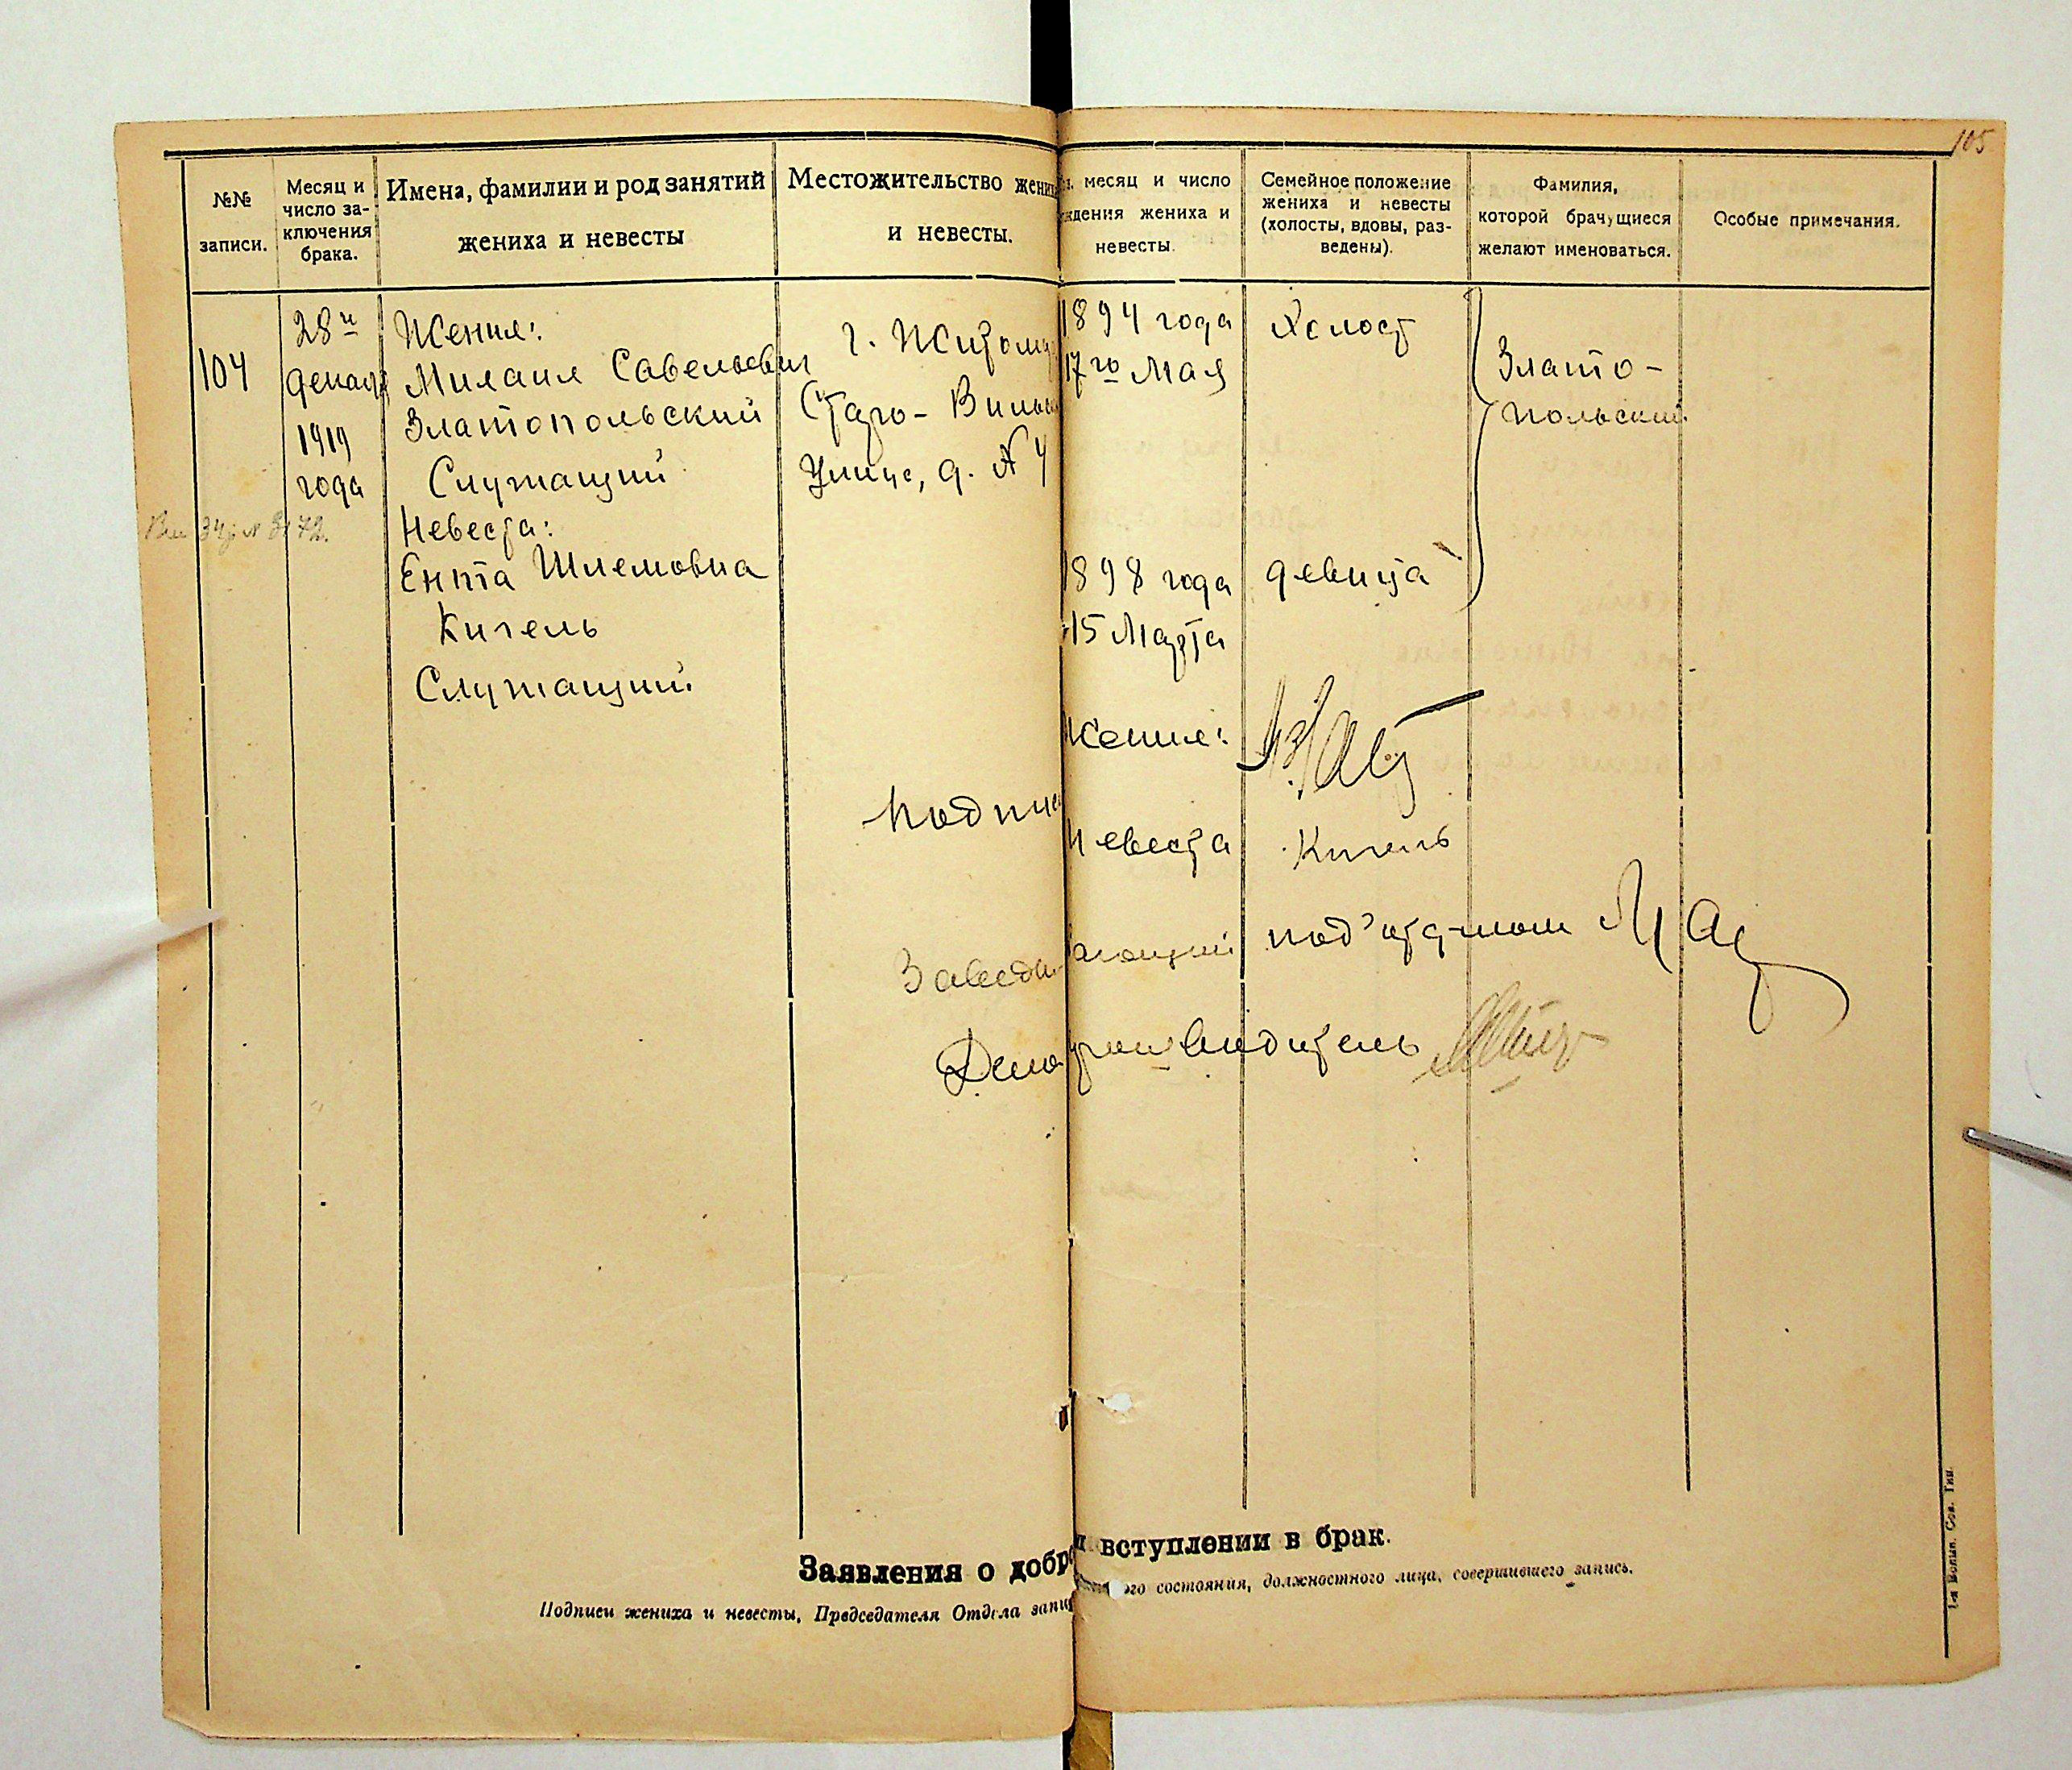 105
№№
записи.
Месяц и
число за-
ключения
брака.
Имена, фамилии и род занятий
жениха и невесты
Местожительство жени
и невесты.
месяц и число
ждения жениха и
невесты.
Семейное положение
жениха и невесты
(холосты, вдовы, раз-
ведены).
Фамилия,
которой брачущиеся
желают именоваться.
Особые примечания.
104
28го
декабр
1919
года
Жених:
Михаил Савельевич
Златопольский
Служащий
Невеста:
Ента Шлемовна
Кигель
Служащий
г. Житоми
Старо-Вильн
Улице, д. № 4
1894 года
17го Мая
1898 года
15 Марта
Холост
девица
Злато-
польский
Жених:
Подписи
Невеста Кигель
Заведывающий под'отд-лом
Делопроизводитель
Заявления о добр и вступлении в брак.
Подписи жениха и невесты, Председателя Отдела запи го состояния, должностного лица, совершившего запись.
1-я Волын. Сов. Тип.